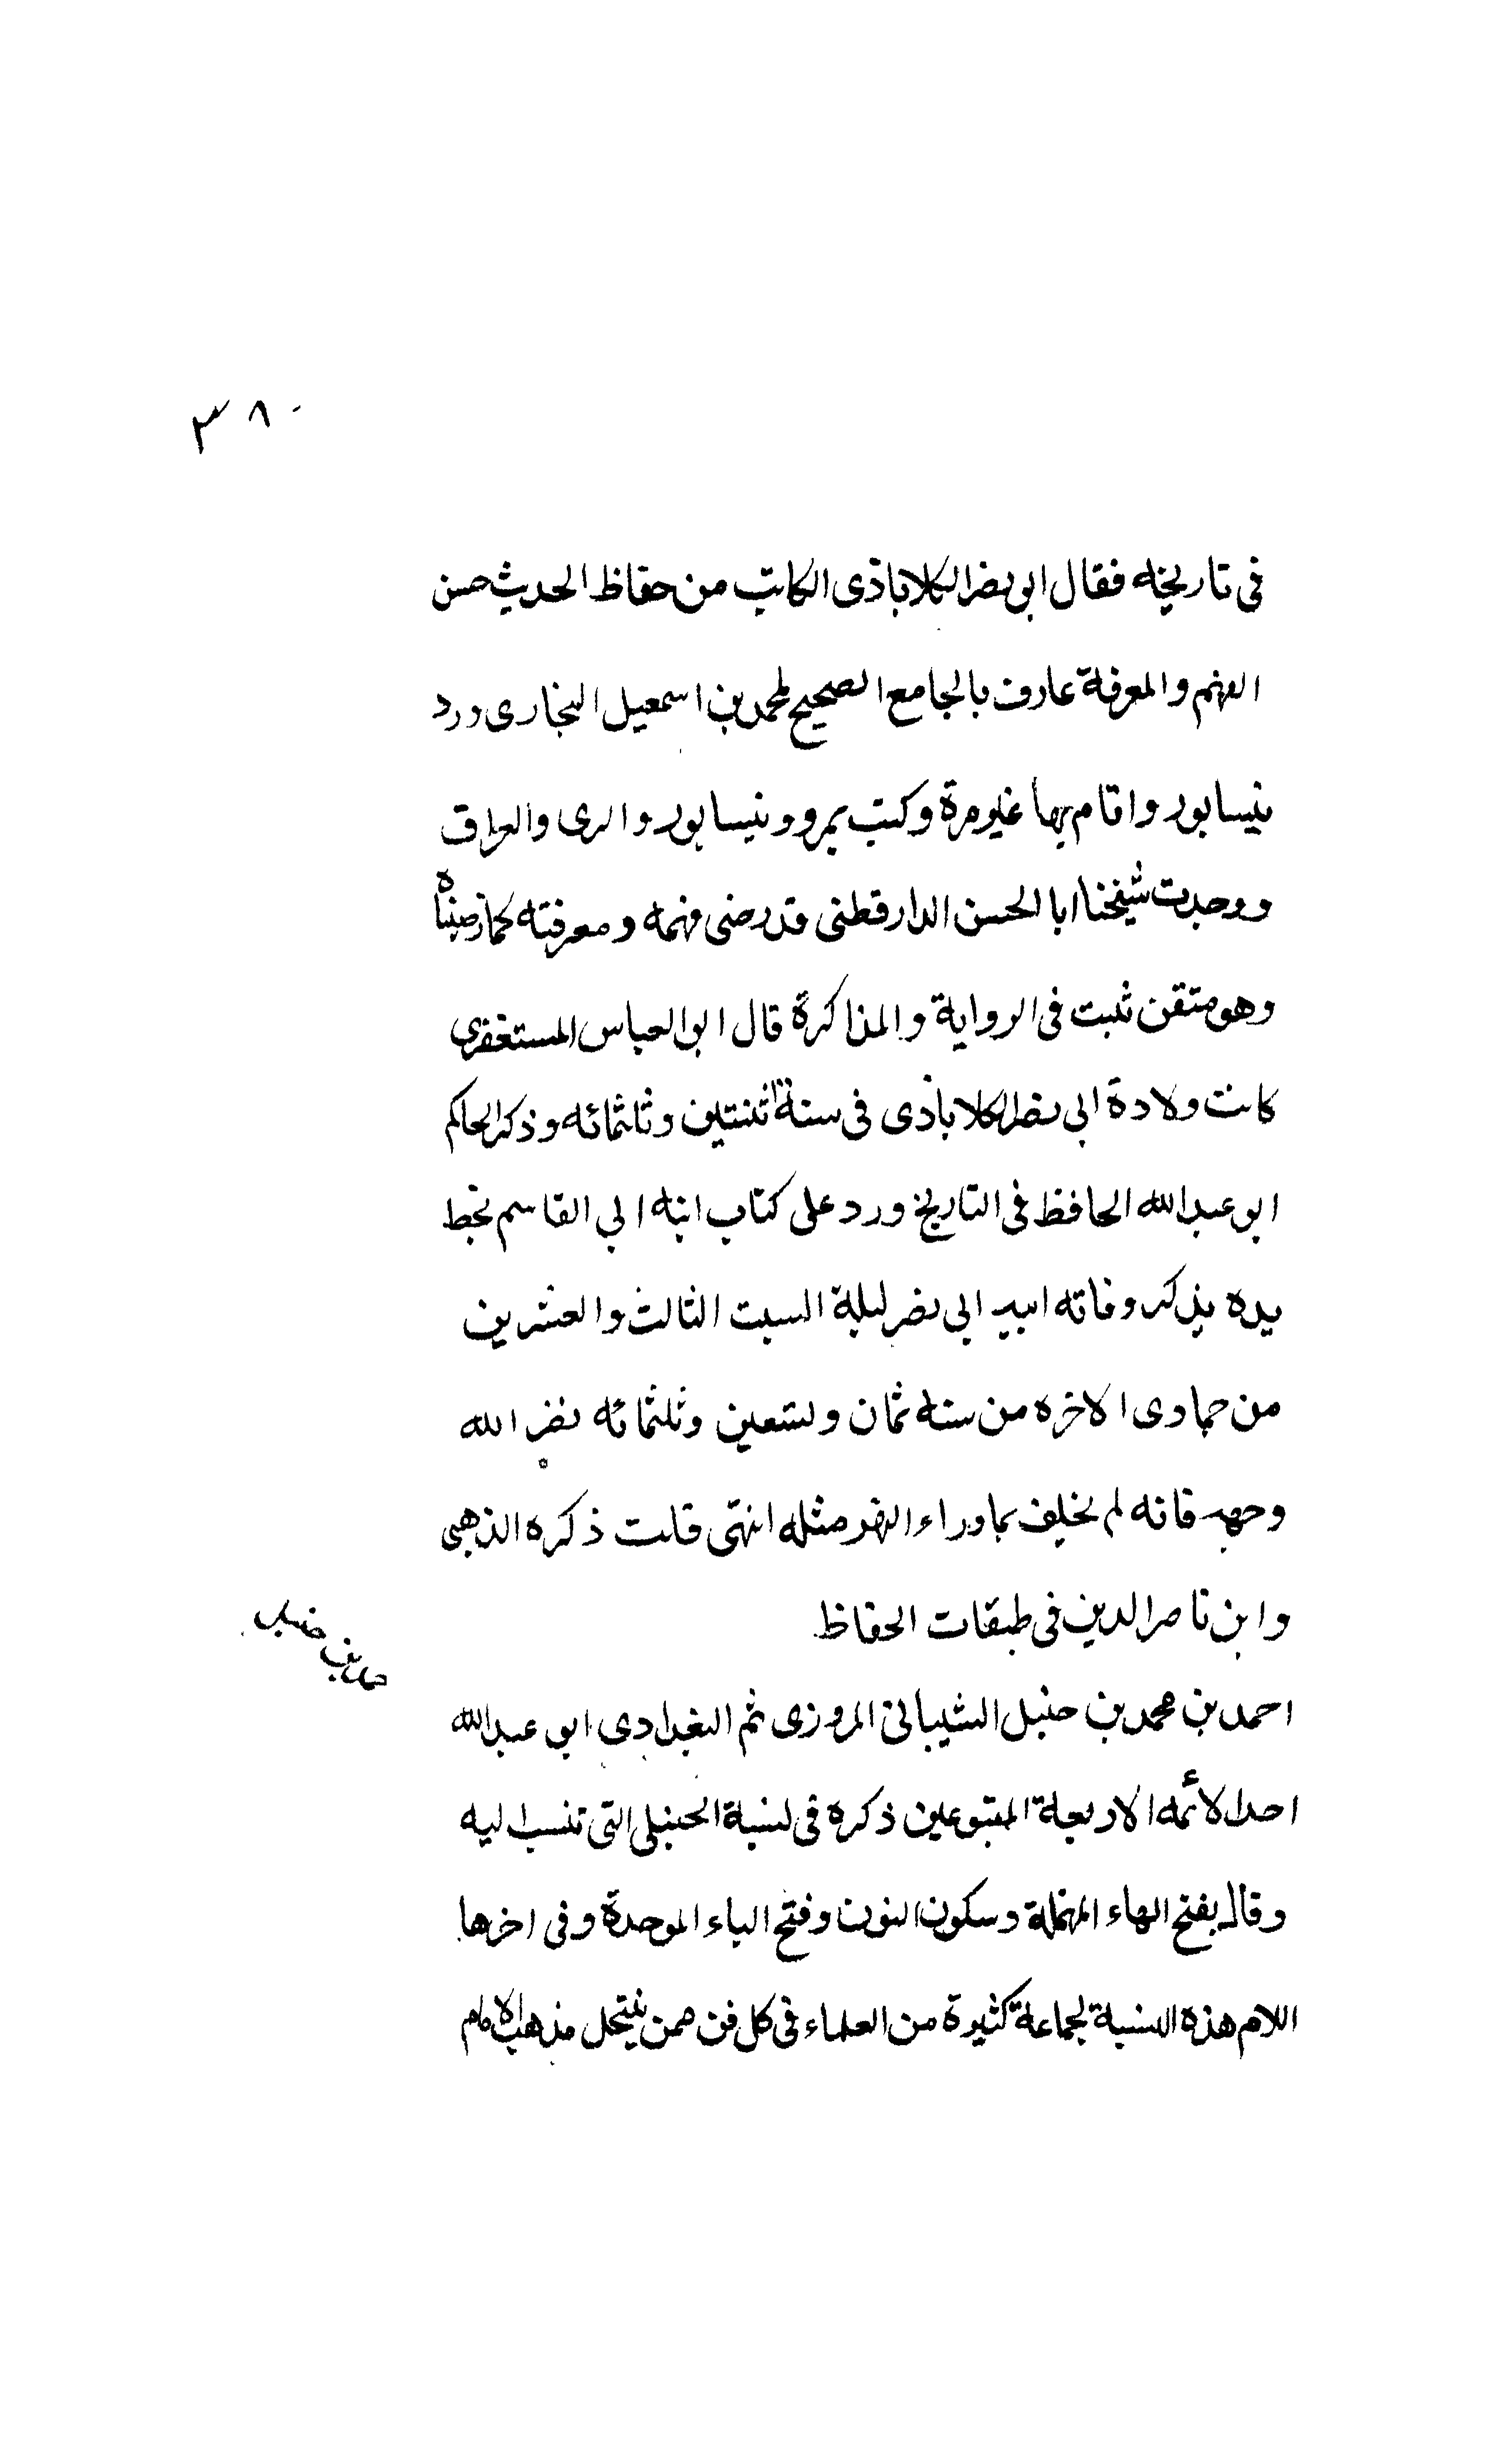 ٣٨٠
فى تاريخه فقال ابو نصر الكلاباذى الكاتب من حفاظ الحديث حسن
الفهم والمعرفة عارف بالجامع الصحيح لمحمد بن اسمعيل البخارى ورد
نيسابور واقام بها غير مرة وكتب بمرو ونيسابور والرى والعراق
ووجدت شيخنا ابا الحسن الدارقطنى قد رضى فهمه ومعرفته كما رضيناه
وهو متقن ثبت فى الرواية والمذاكرة قال ابو العباس المستغفرى
كانت ولادة ابى نصر الكلاباذى فى سنة اثنتين وثلثمائه وذكر الحاكم
ابو عبد الله الحافظ فى التاريخ ورد على كتاب ابنه ابي القاسم بخط
يده يذكر وفاته ابيه ابي نصر ليلة السبت الثالث والعشرين
من جمادى الاخره من سنه ثمان وتسعين وثلثمائه نضر الله
وجهه فانه لم يخلف بماوراء النهر مثله انتهى قلت ذكره الذهبى
وابن ناصر الدين فى طبقات الحفاظ
احمد بن حنبل
احمد بن محمد بن حنبل الشيبانى المروزى ثم البغدادى ابو عبد الله
احد الأئمه الاربعة المتبوعين ذكره فى نسبة الحنبلى التى تنسب اليه
وقال بفتح الهاء المهملة وسكون النون وفتح الباء الموحدة وفى اخرها
اللام هذه النسبة لجماعة كثيرة من العلماء فى كل فن ممن ينتحل مذهب الامام